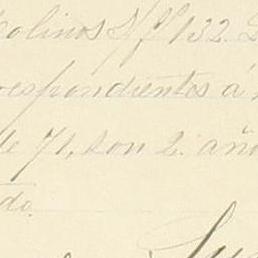 polinos S/f 132.
respondientes á
de 71, son 2. año
do.